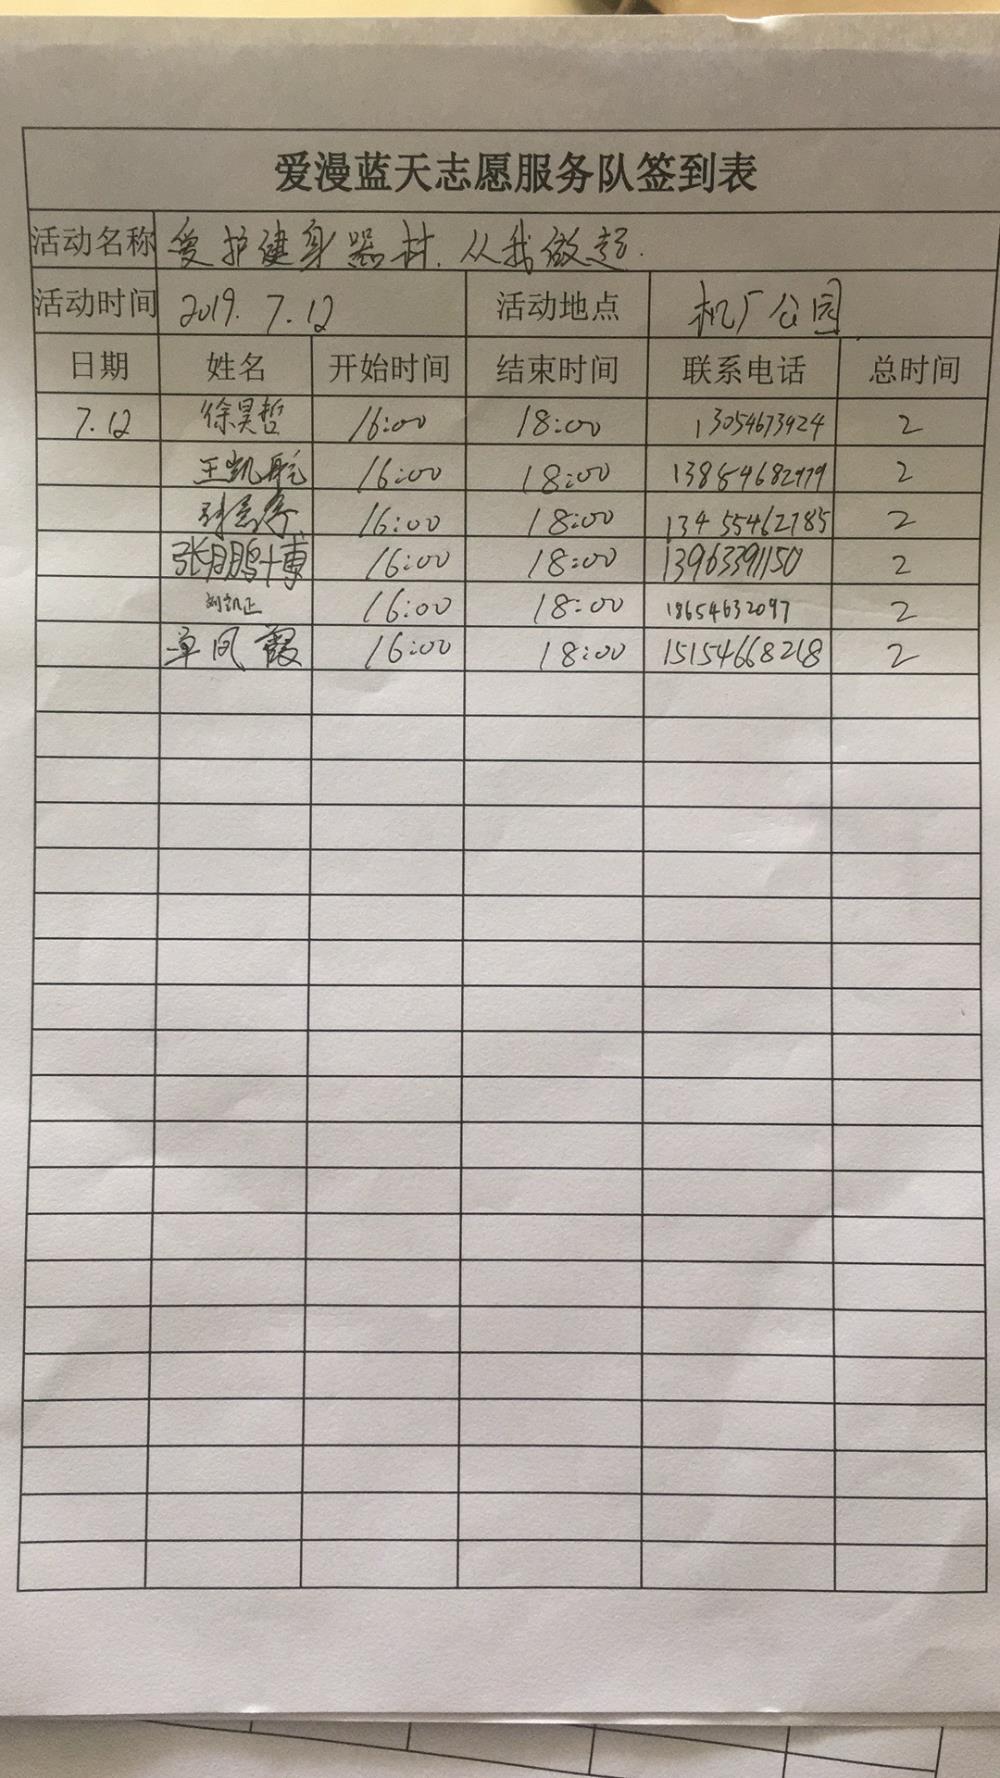 爱漫蓝天志愿服务队签到表
活动名称 爱护健身器材,从我做起.
活动时间 2019.7.12 活动地点 机厂公园
日期 姓名 开始时间 结束时间 联系电话 总时间
7.12 徐昊哲 16:00 18:00 13054673924 2
王凯航 16:00 18:00 13854682979 2
16:00 18:00 13455462785 2
张鹏博 16:00 18:00 13963391150 2
刘凯正 16:00 18:00 18654632097 2
卓凤霞 16:00 18:00 15154668218 2